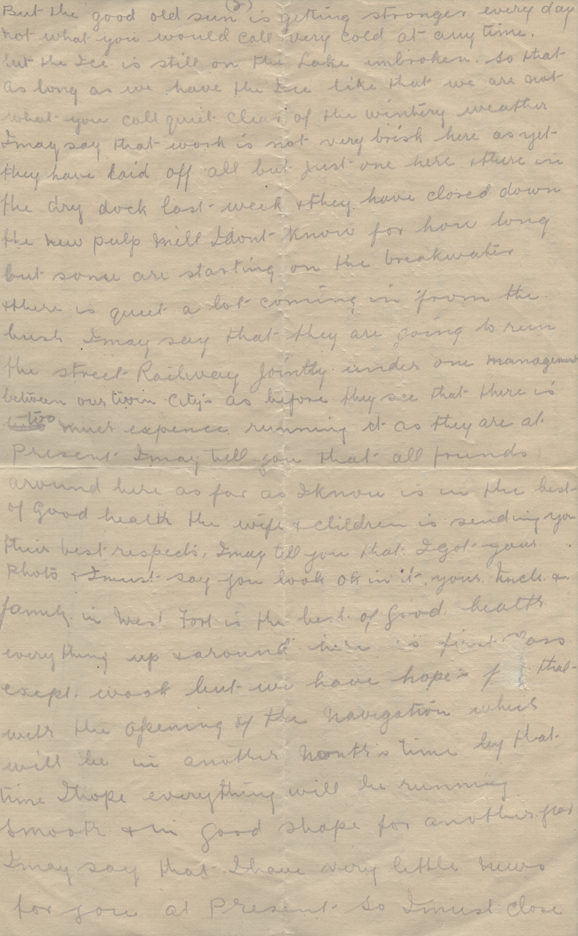 (2)
But the good old sun is getting stronger every day
not what you would call very cold at any time.
but the Ice is still on the Lake unbroken. so that
as long as we have the Ice like that we are not
what you call quiet clear of the wintery weather
I may say that work is not very brisk here as yet
they have laid off all but just one here & there in
the dry dock last week & they have closed down
the new pulp mill I dont know for how long
but some are starting on the breakwater
& there is quiet a lot coming in from the
bush I may say that they are going to run
the street Railway Jointly under one management
between our twin City's as before they see that there is
too much expence running it as they are at
Present I may tell you that all friends
around here as far as I know is in the best
of Good health the wife & children is sending you
their best respects, I may tell you that I got your
Photo & I must say you look ok in it, your Uncle &
family in West Fort is the best of good health
everything up & around here is first class
exept work but we have hopes of that
with the opening of the navigation which
will be in another Month's time by that
time I hope everything will be running
Smooth & in good shape for another year
I may say that I have very little news
for you at Present so I must close